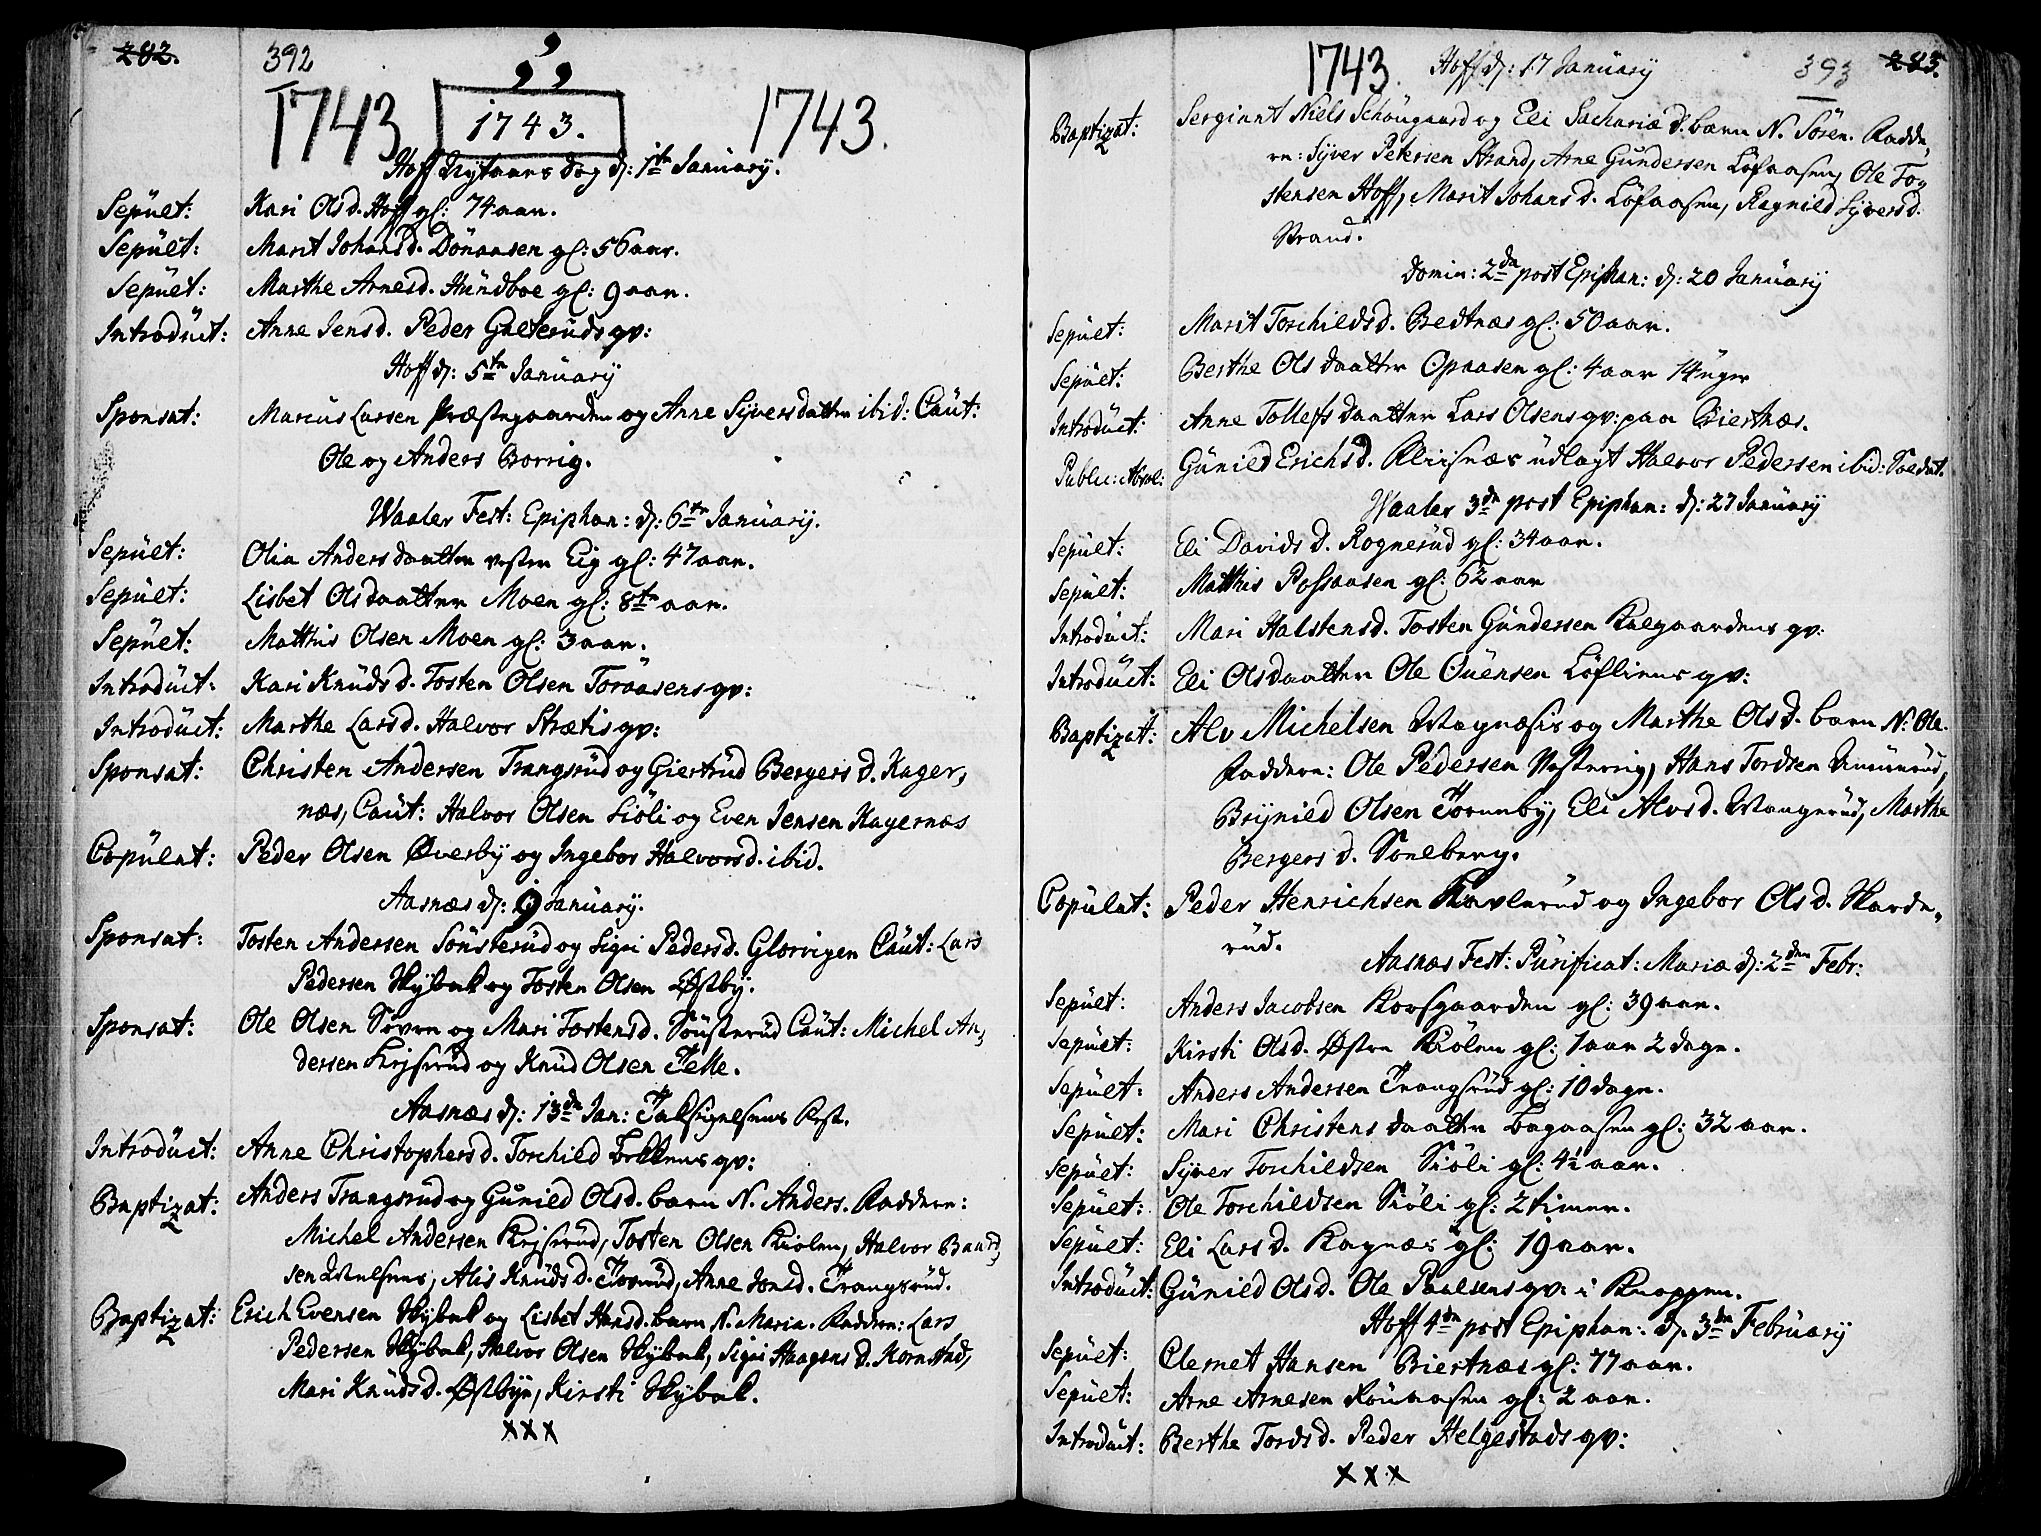 282.
392
1743
1743.
1743.
Hoff Nytaars dag d: 1te January.
Sepult: Kari Olsd. Hoff gl: 74 aar.
Sepult: Marit Johansd. Dönaasen gl: 56 aar.
Sepult: Marthe Arnesd. Hundboe gl: 9 aar.
Introduct: Anne Jensd. Peder Gulteruds qv:
Hoff d: 5te January
Sponsat: Marcus Larsen Præstegaarden og Anne Syversdatter ibid: Caut:
Ole og Anders Borrig.
Waaler Fest: Epiphan: d: 6te January.
Sepult: Olia Andersdaatter vester Eig gl: 47 aar.
Sepult: Lisbet Olsdaatter Moen gl: 8te aar.
Sepult: Matthis Olsen Moen gl: 3 aar.
Introduct: Kari Knudsd. Tosten Olsen Toraasens qv:
Introduct: Marthe Larsd. Halvor Strætis qv:
Sponsat: Christen Andersen Trangsrud og Giertrud Bergersd. Kager,
næs, Caut: Halvor Olsen Siöli og Even Jensen Kagernæs
Copulat: Peder Olsen Øverby og Ingebor Halvorsd. ibid.
Aasnæs d: 9 January.
Sponsat: Tosten Andersen Sönsterud og Sigri Pedersd. Glorvigen Caut: Lars
Pedersen Skybak og Tosten Olsen Østby.
Sponsat: Ole Olsen Söern og Mari Tostensd. Sönsterud Caut: Michel An,
dersen Krysrud og Knud Olsen Telle.
Aasnæs d: 13de Jan: Taksigelsens Fest.
Introduct: Anne Christophersd. Torchild qv:
Baptizat: Anders Trangsrud og Gunild Olsd. barn N. Anders. Faddere:
Michel Andersen Krysrud, Tosten Olsen Kiölen, Halvor Baard,
sen, Alis Knudsd. Tiosrud, Anne Jonsd. Trangsrud.
Baptizat: Erich Evensen Skybak og Lisbet Hansd. barn N. Maria. Faddere: Lars
Pedersen Skybak, Halvor Olsen Skybak, Sigri Haagensd. Kornstad,
Mari Knudsd. Østbye, Kirsti Skybak.
xxx
1743.
Hoff d: 17 January
393
283.
Baptizat: Sergiant Niels Schougaard og Eli Sachariæ d. barn N. Sören. Fadde,
re: Syver Petersen Strand, Arne Gundersen Löfaasen, Ole To,
stensen Hoff, Marit Johansd. Löfaasen, Ragnild Syversd.
Strand.
Domin: 2da post Epiphan: d: 20 January
Sepult: Marit Torchildsd. Bredtnæs gl: 50 aar.
Sepult: Berthe Olsdaatter Opaasen gl: 4 aar 14 uger
Introduct: Anne Tollefsdaatter Lars Olsens qv: paa Biertnæs.
Public: Absol: Gunild Erichsd. Kliisnæs udlagt Halvor Pedersen ibid: Soldat.
Waaler 3de post Epiphan: d: 27 January
Sepult: Eli Davidsd. Rognerud gl: 34 aar.
Sepult: Matthis Possaasen gl: 62 aar
Introduct: Mari Halstensd. Tosten Gundersen Kalgaardens qv:
Introduct: Eli Olsdaatter Ole Ouensen Löfliens qv:
Baptizat: Alv Michelsen Wagnæsis og Marthe Olsd. barn N. Ole.
Faddere: Ole Pedersen Vesterrig, Hans Tordsen,
Brynild Olsen Torunby, Eli Alvsd. Wangerud, Marthe
Bergersd. Soneberg.
Copulat: Peder Henrichsen Kavlerud og Ingebor Olsd. Skarde,
rud.
Aasnæs Fest: Purificat: Mariæ d: 2den Febr:
Sepult: Anders Jacobsen Korsgaarden gl: 39 aar.
Sepult: Kirsti Olsd. Østre Kiölen gl: 1 aar 2 dage.
Sepult: Anders Andersen Trangsrud gl: 10 dage.
Sepult: Mari Christensdaatter Bagaasen gl: 32 aar.
Sepult: Syver Torchildsen Siöli gl: 4½ aar.
Sepult: Ole Torchildsen Siöli gl: 2 timer.
Sepult: Eli Larsd. Kagnæs gl: 19 aar.
Introduct: Gunild Olsd. Ole Paulsens qv: i Knappen.
Hoff 4de post Epiphan: d: 3de February
Sepult: Clemet Hansen Biertnæs gl: 77 aar.
Sepult: Arne Arnesen gl: 2 aar.
Introduct: Berthe Tordsd. Peder Helgestads qv:
xxx